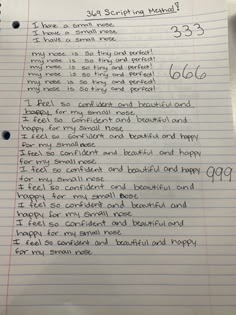 369 Scripting Method!
I have a small nose
I have a small nose 333
I have a small nose
my nose is so tiny and perfect!
my nose is so tiny and perfect!
my nose is so tiny and perfect! 666
my nose is so tiny and perfect!
my nose is so tiny and perfect!
my nose is so tiny and perfect!
I feel so confident and beautiful and
happy for my small nose
I feel so confident and beautiful and
happy for my small nose
I feel so confident and beautiful and happy
for my small nose
I feel so confident and beautiful and happy
for my small nose
I feel so confident and beautiful and happy 999
for my small nose
I feel so confident and beautiful and
happy for my small nose
I feel so confident and beautiful and
happy for my small nose
I feel so confident and beautiful and
happy for my small nose
I feel so confident and beautiful and happy
for my small nose